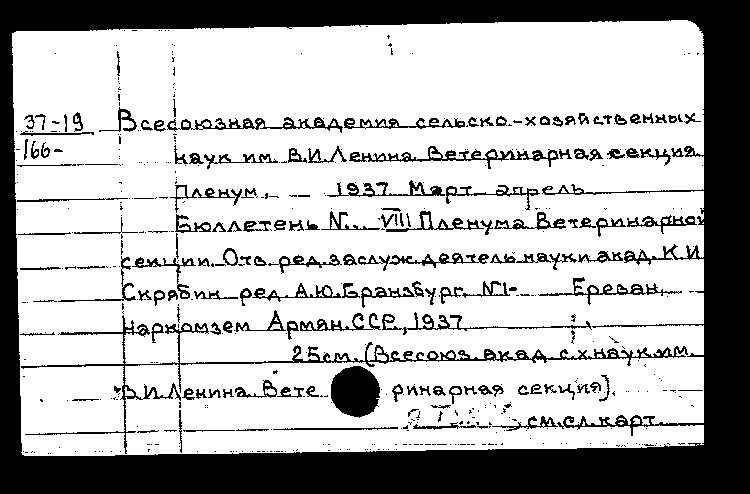 37-19 Всесоюзная академия сельско-хозяйственных
166- наук им. В.И.Ленина. Ветеринарная секция.
Пленум, - 1937 Март апрель
Бюллетень N... VIII Пленума Ветеринарной
секции. Отв. ред. заслуж. деятель науки акад. К.И
Скрябин ред. А.Ю.Бранзбург. N1- Ереван,
Наркомзем Армян.ССР., 1937
25см. (Всесоюз. акад с.х.наук им.
В.И.Ленина. Вете ринарная секция).
см.сл.карт.